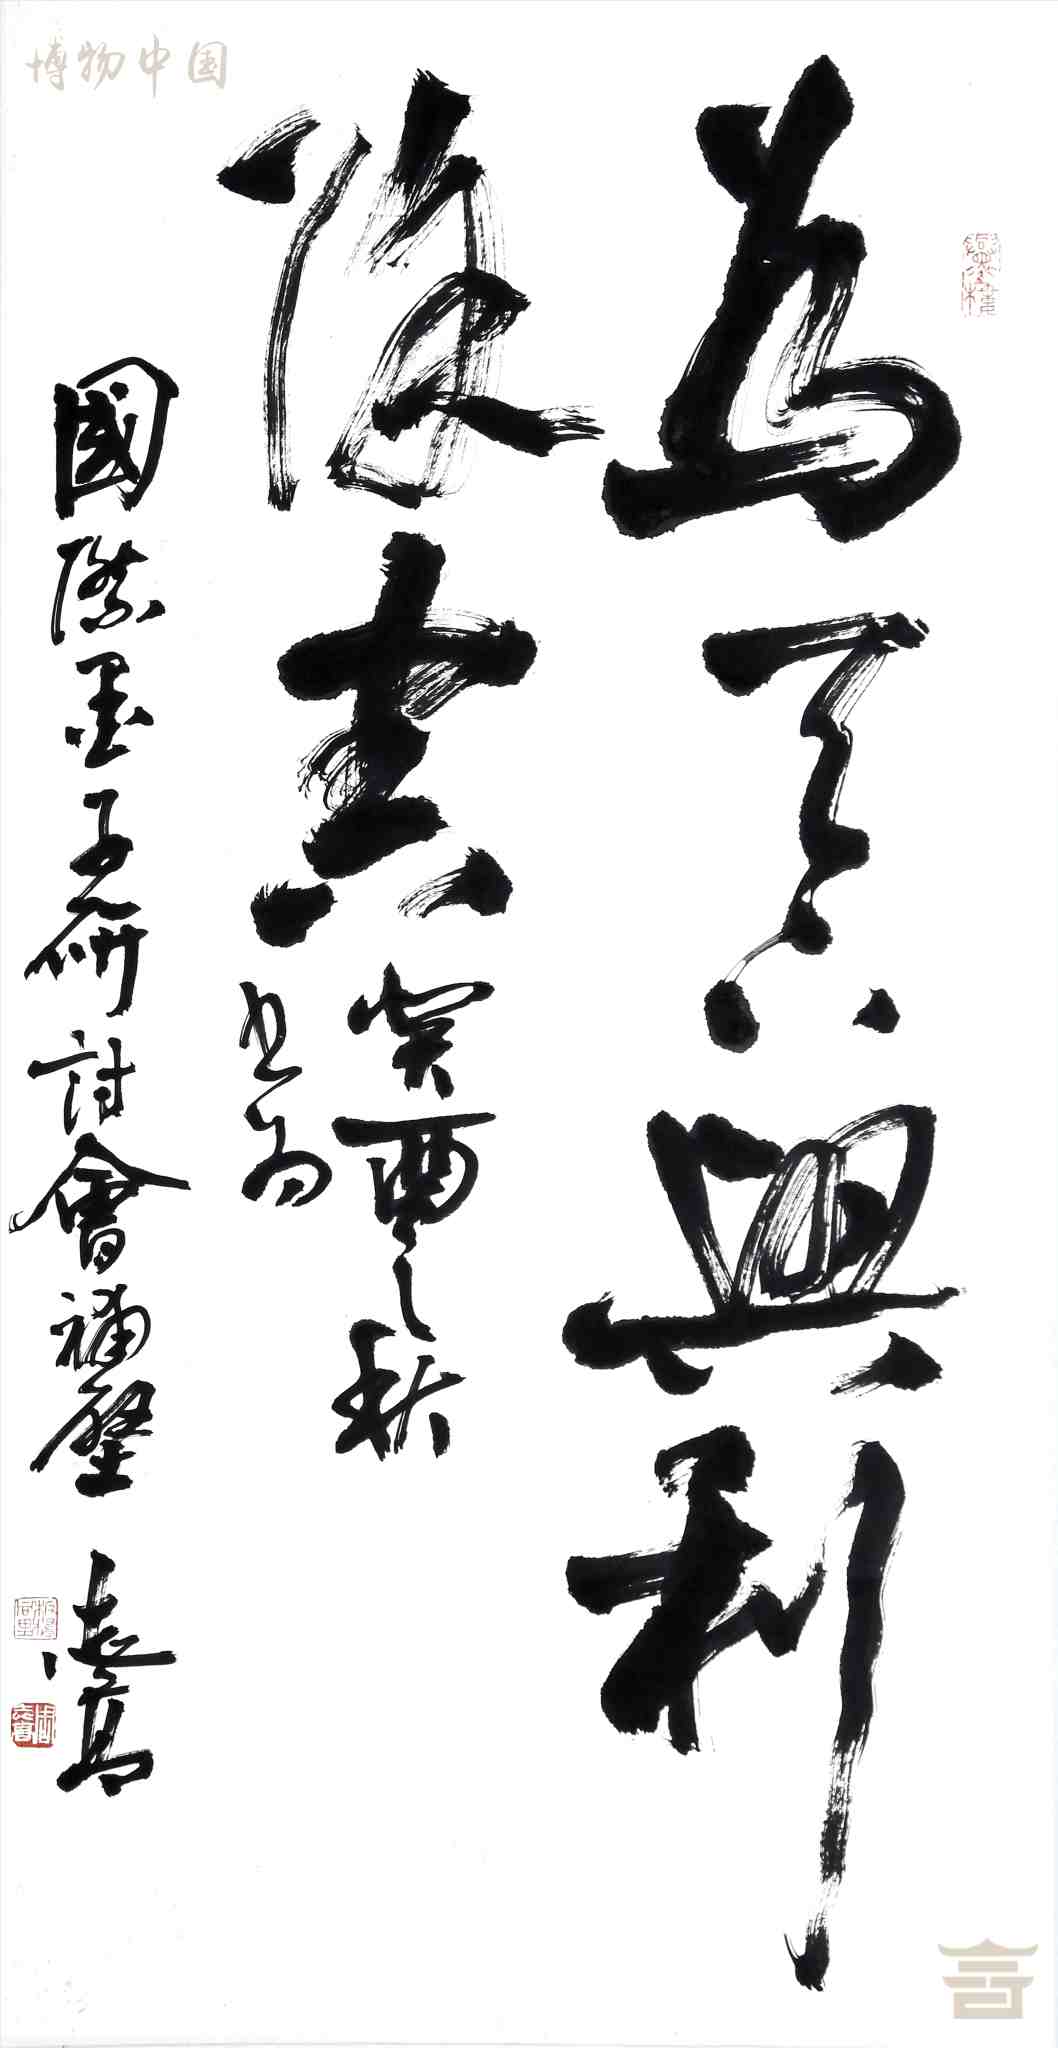 為天下興利
除害
癸酉之秋
書為
國際墨子研討會補壁 志高
周志高
博物中国